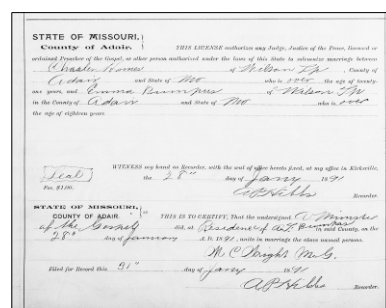 STATE OF MISSOURI,
County of Adair.
THIS LICENSE authorizes any Judge, Justice of the Peace, licensed or
ordained Preacher of the Gospel, or other person authorized under the laws of this State to solemnize marriage between
Charles of Wilson Tp, County of
Adair and State of Mo who is over the age of twenty-
one years, and Emma Bumpus of Wilson Tp
in the County of Adair and State of Mo who is over
the age of eighteen years.
WITNESS my hand as Recorder, with the seal of office hereto fixed, at my office in Kirksville,
Seal the 28" day of Jany 1891
Fee, $1.00. A P Hibbs Recorder.
STATE OF MISSOURI,
COUNTY OF ADAIR
THIS IS TO CERTIFY, That the undersigned, a Minister
of the Gospel did, at Residence of in said County, on the
28" day of January A. D. 1891, unite in marriage the above named persons.
M C Wright M.G.
Filed for Record this 31" day of Jany 1891
A P Hibbs Recorder.